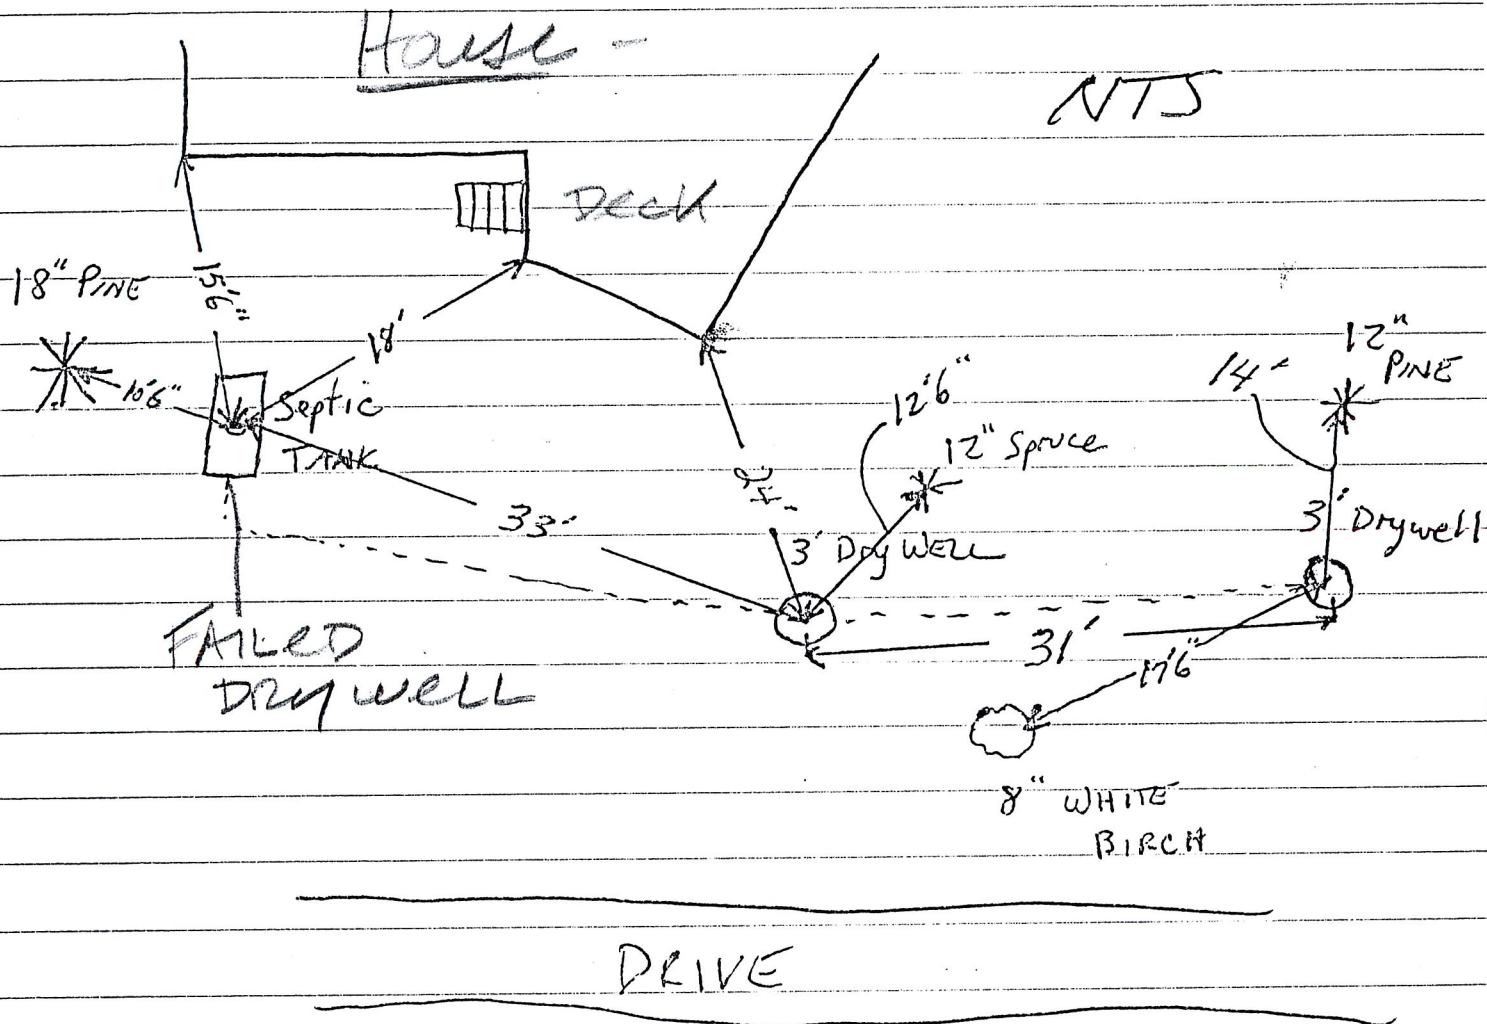 House -
NTS
DECK
18" PINE
15'6"
18'
10'6"
Septic
TANK
12'6"
12" Spruce
14'
12"
PINE
33'
3' Dry WELL
3' Drywell
FAILED
DRYWELL
31'
17'6"
8" WHITE
BIRCH
DRIVE